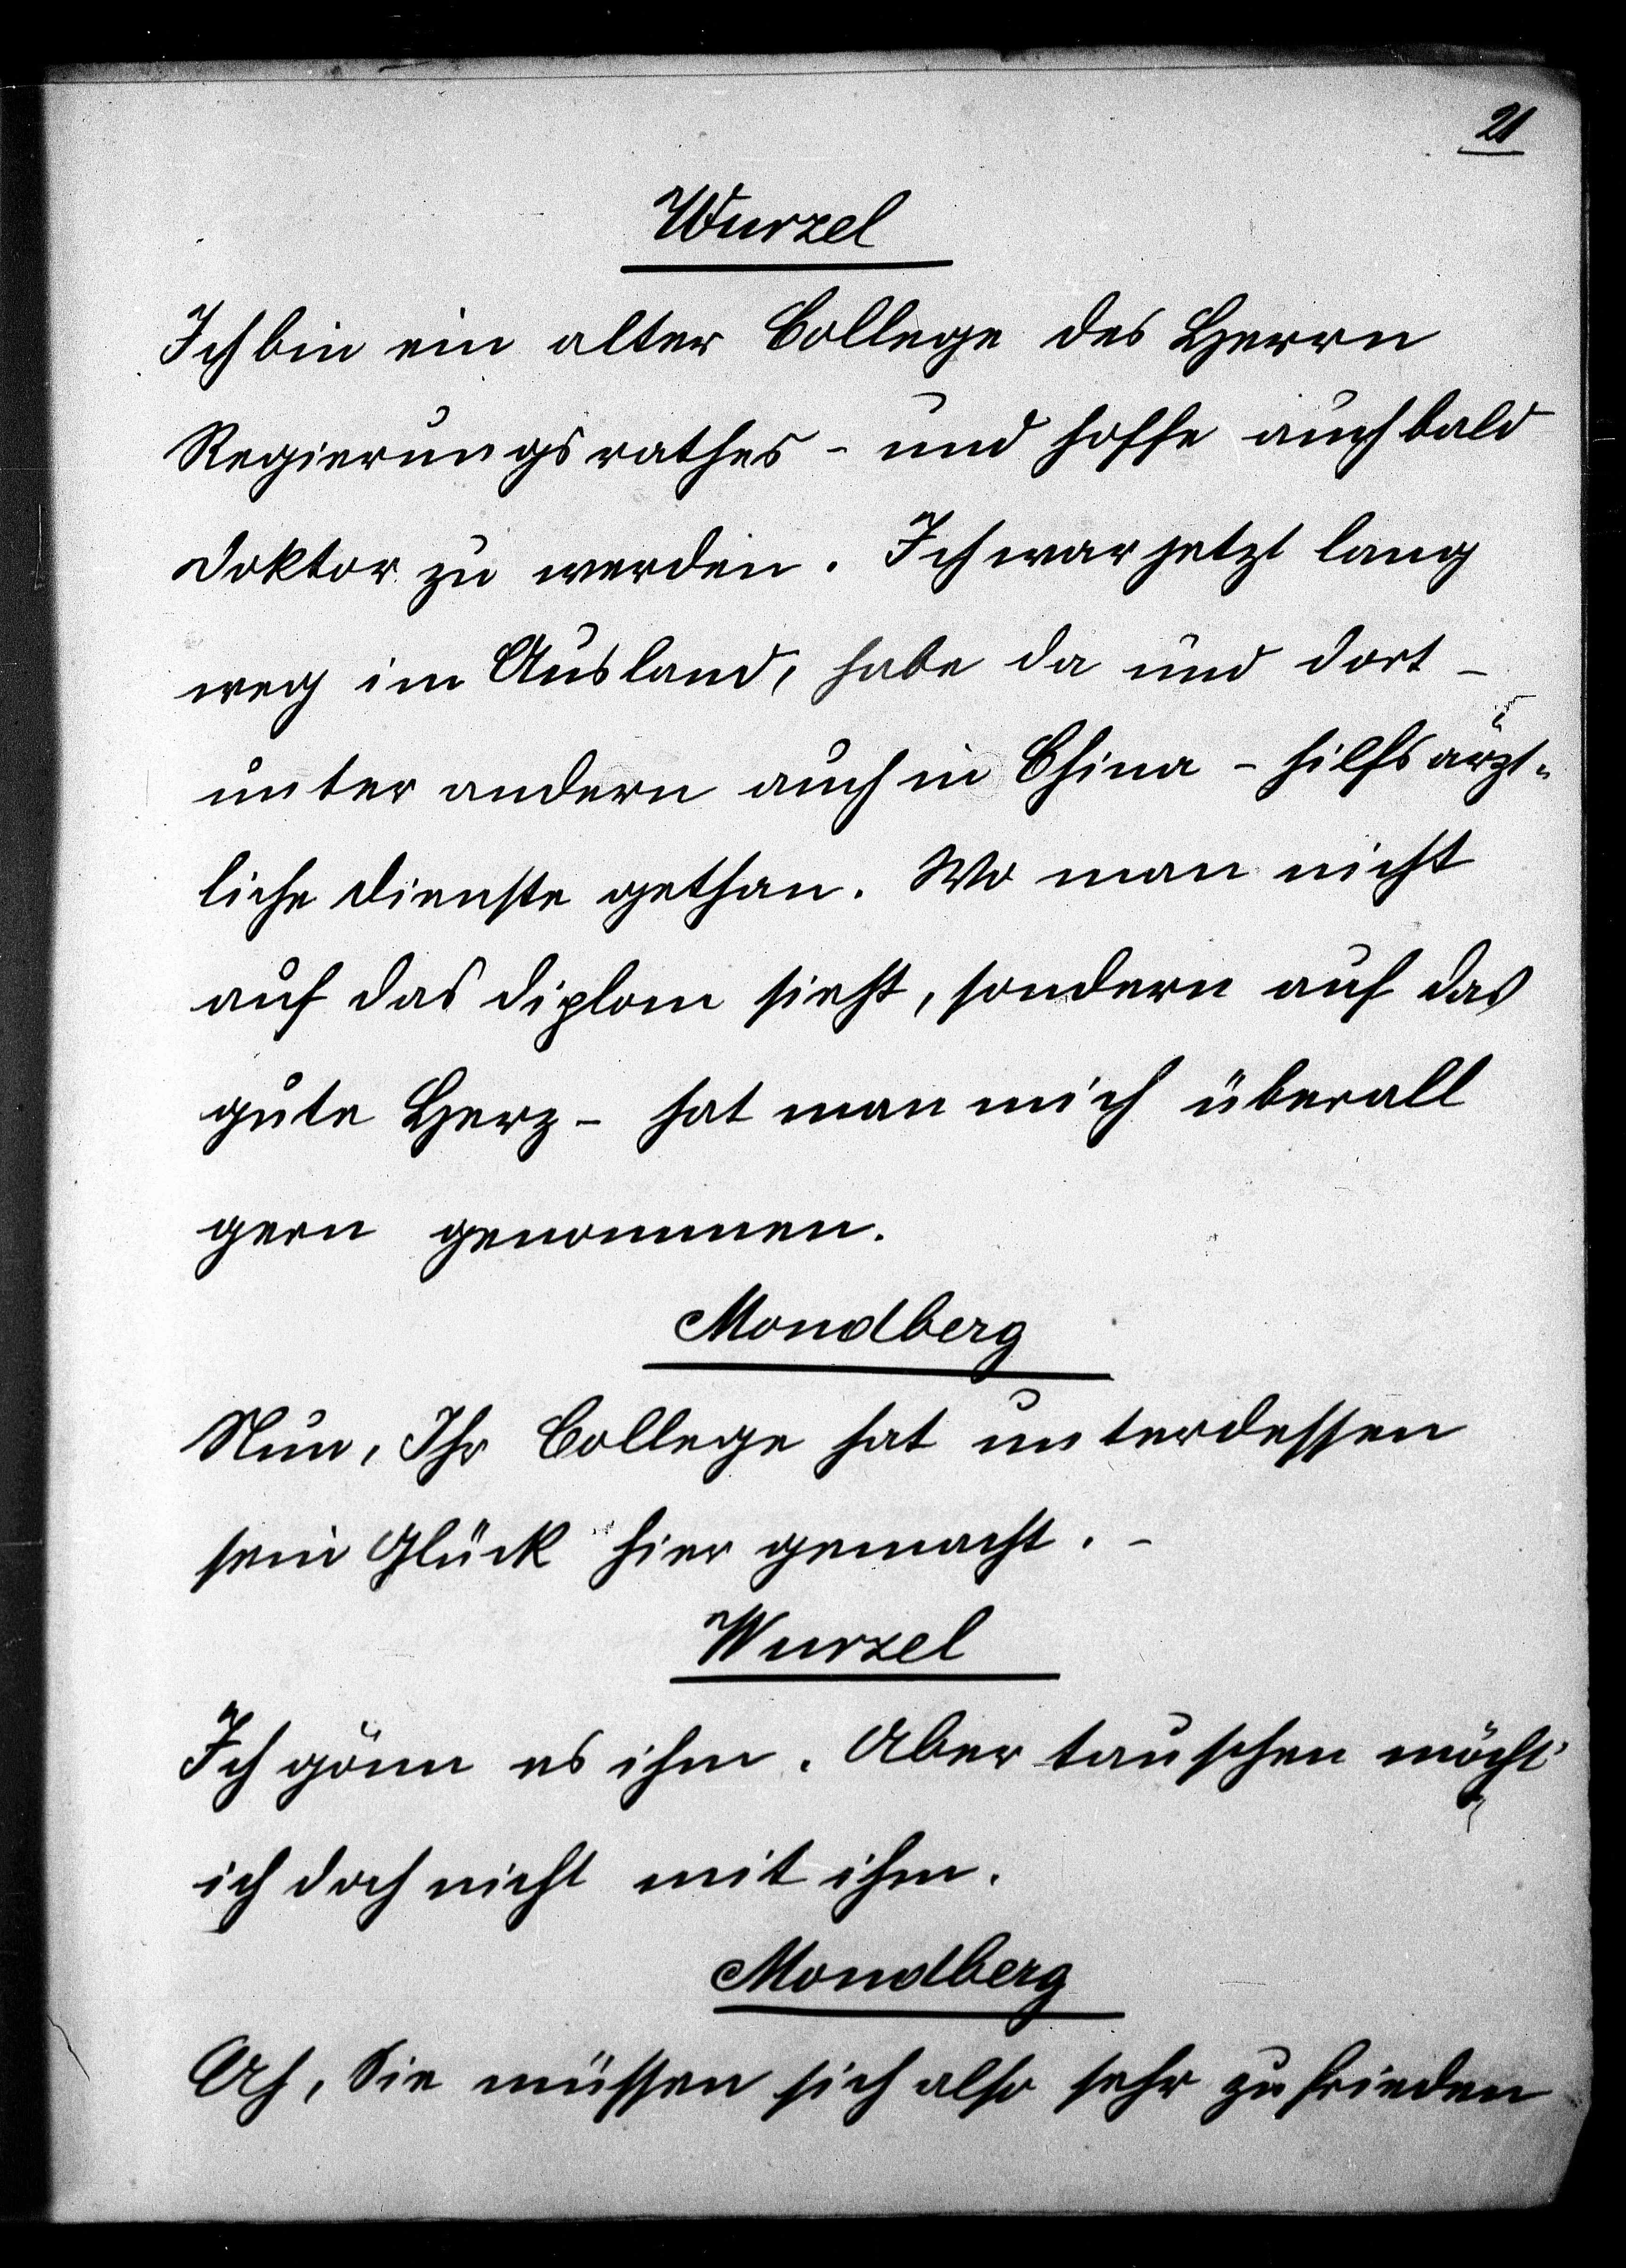 21
Wurzel
Ich bin ein alter College des Herrn
Regierungsrathes - und hoffe auch bald
Doktor zu werden. Ich war jetzt lang
weg im Ausland, habe da und dort -
unter andern auch in China - hilfsärzt-
liche Dienste gethan. Wo man nicht
auf das Diplom sieht, sondern auf das
gute Herz - hat man mich überall
gern genommen.
Mondberg
Nun, Ihr College hat unterdessen
sein Glück hier gemacht. -
Wurzel
Ich gönn es ihm. Aber tauschen möcht'
ich doch nicht mit ihm.
Mondberg
Ah, Sie müssen sich also sehr zufrieden